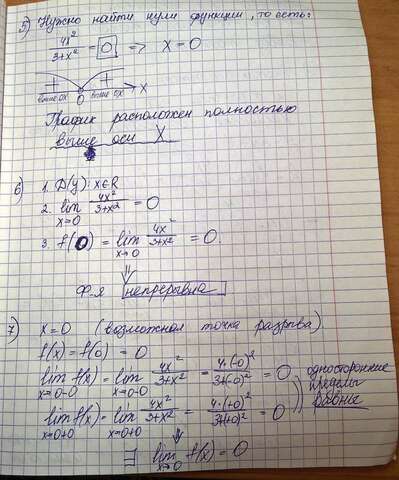 5) Нужно найти нули функции, то есть:
4x²/3+x² = 0 => x = 0
+ + 
выше OX 0 выше OX x
График расположен полностью
выше оси X
6) 1. D(y): x∈R
2. lim x→0 4x²/3+x² = 0
3. f(0) = lim x→0 4x²/3+x² = 0.
⇓
Ф-я непрерывна
7) x=0 (возможная точка разрыва).
f(x) = f(0) = 0
lim x=0-0 f(x) = lim x=0-0 4x²/3+x² = 4·(-0)²/3+(-0)² = 0
lim x=0+0 f(x) = lim x=0+0 4x²/3+x² = 4·(+0)²/3+(+0)² = 0
односторонние
пределы
равны
⇓
∃ lim x→0 f(x) = 0